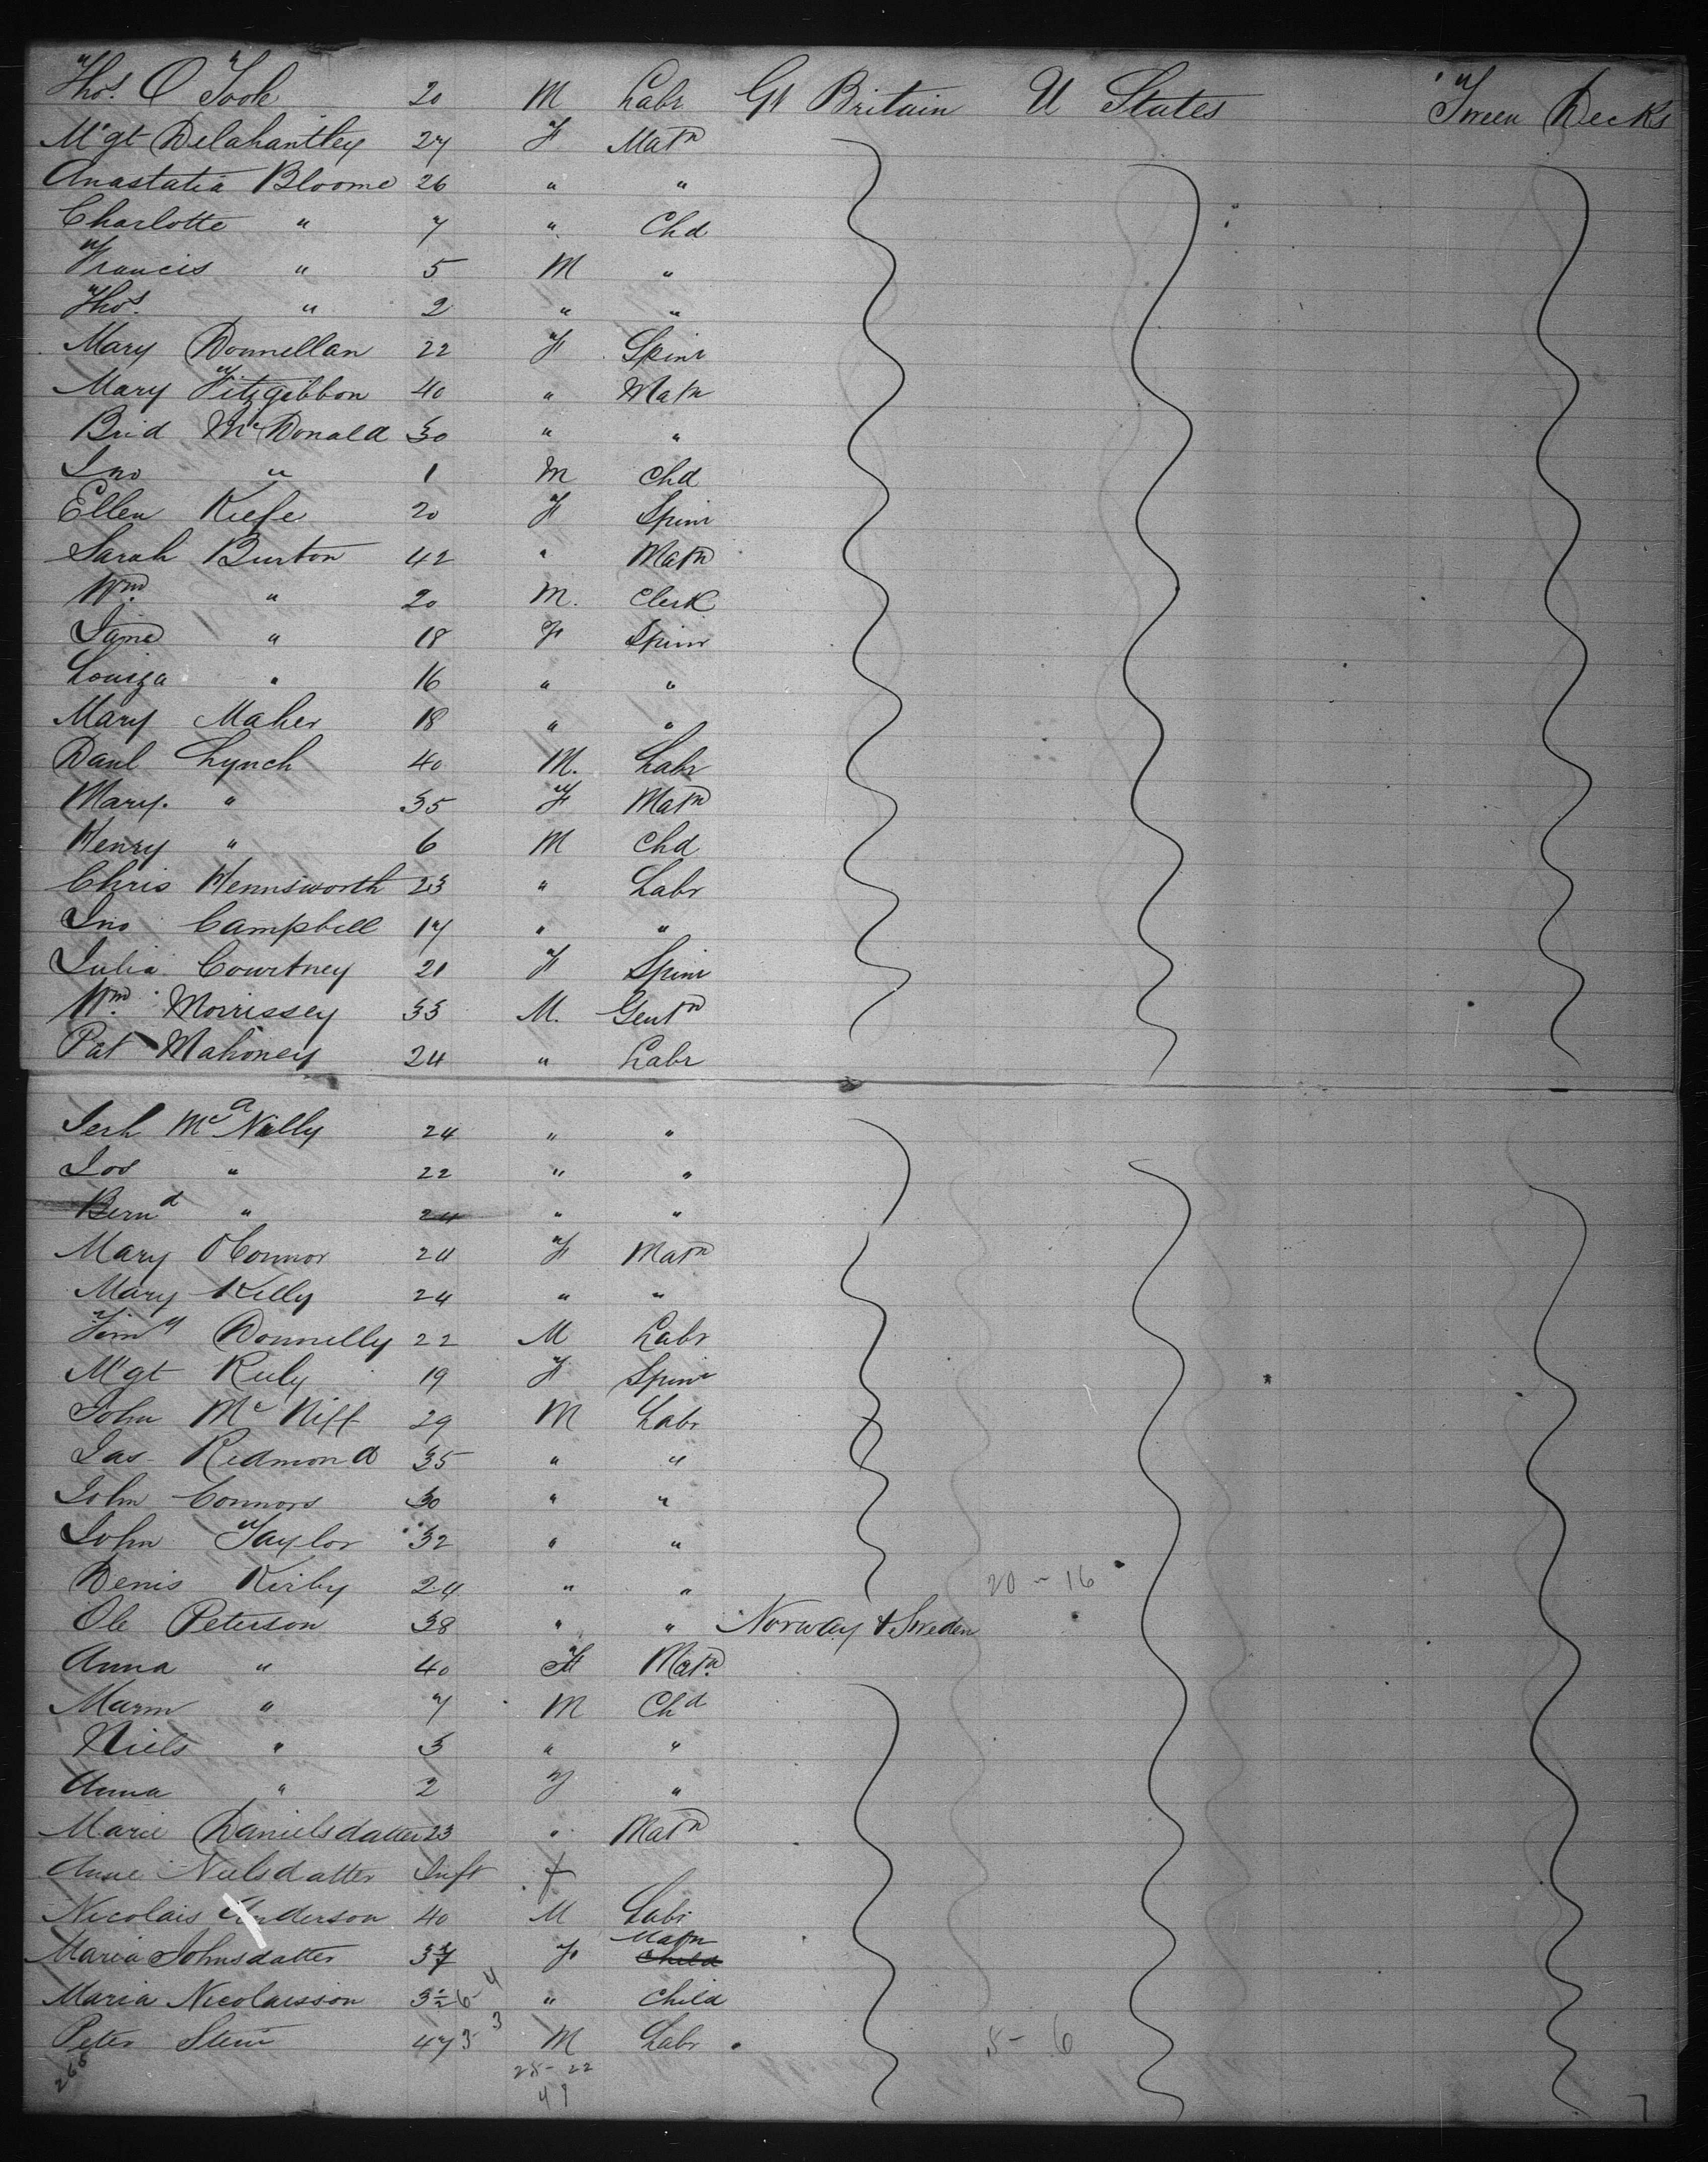 Thos. O Toole 20 M Labr Gt Britain U States Tween Decks
Mgt Delahantley 27 F Matn
Anastatia Bloome 26 " "
Charlotte " 7 " Chd
Francis " 5 M "
Thos. " 2 " "
Mary Donnellan 22 F Spinr
Mary Fitzgibbon 40 " Matn
Brid McDonald 30 " "
Jno " 1 M Chd
Ellen Kiefe 20 F Spinr
Sarah Burton 42 " Matn
Wm. " 20 M. Clerk
Jane " 18 F Spinr
Louiza " 16 " "
Mary Maher 18 " "
Danl Lynch 40 M. Labr
Mary. " 35 F Matn
Henry " 6 M Chd
Chris Hennsworth 23 " Labr
Jno Campbell 17 " "
Julia Courtney 21 F Spinr
Wm. Morrissey 33 M. Gentn
Pat Mahoney 24 " Labr
Jerh McNally 24 " "
Jos " 22 " "
Bernd " 24 " "
Mary O'Connor 24 F Matn
Mary Kelly 24 " "
Timy Donnelly 22 M Labr
Mgt Ruly 19 F Spinr
John Mc Niff 29 M Labr
Jas Redmond 35 " "
John Connors 30 " "
John Taylor 32 " "
Denis Kirby 24 " " 20 - 16
Ole Peterson 38 " " Norway & Sweden
Anna " 40 F Matn.
Marm " 7 M Chd
Niels " 3 " "
Anna " 2 F "
Marie Danielsdatter 23 " Matn
Anne Nielsdatter Inft f
Nicolais Anderson 40 M Labr
Maria Johnsdatter 37 F Matn Child
Maria Nicolaisson 3½ 6 4 " Child
Peter Stein 47 3 3 M Labr 8 - 6
266 25 - 22
47